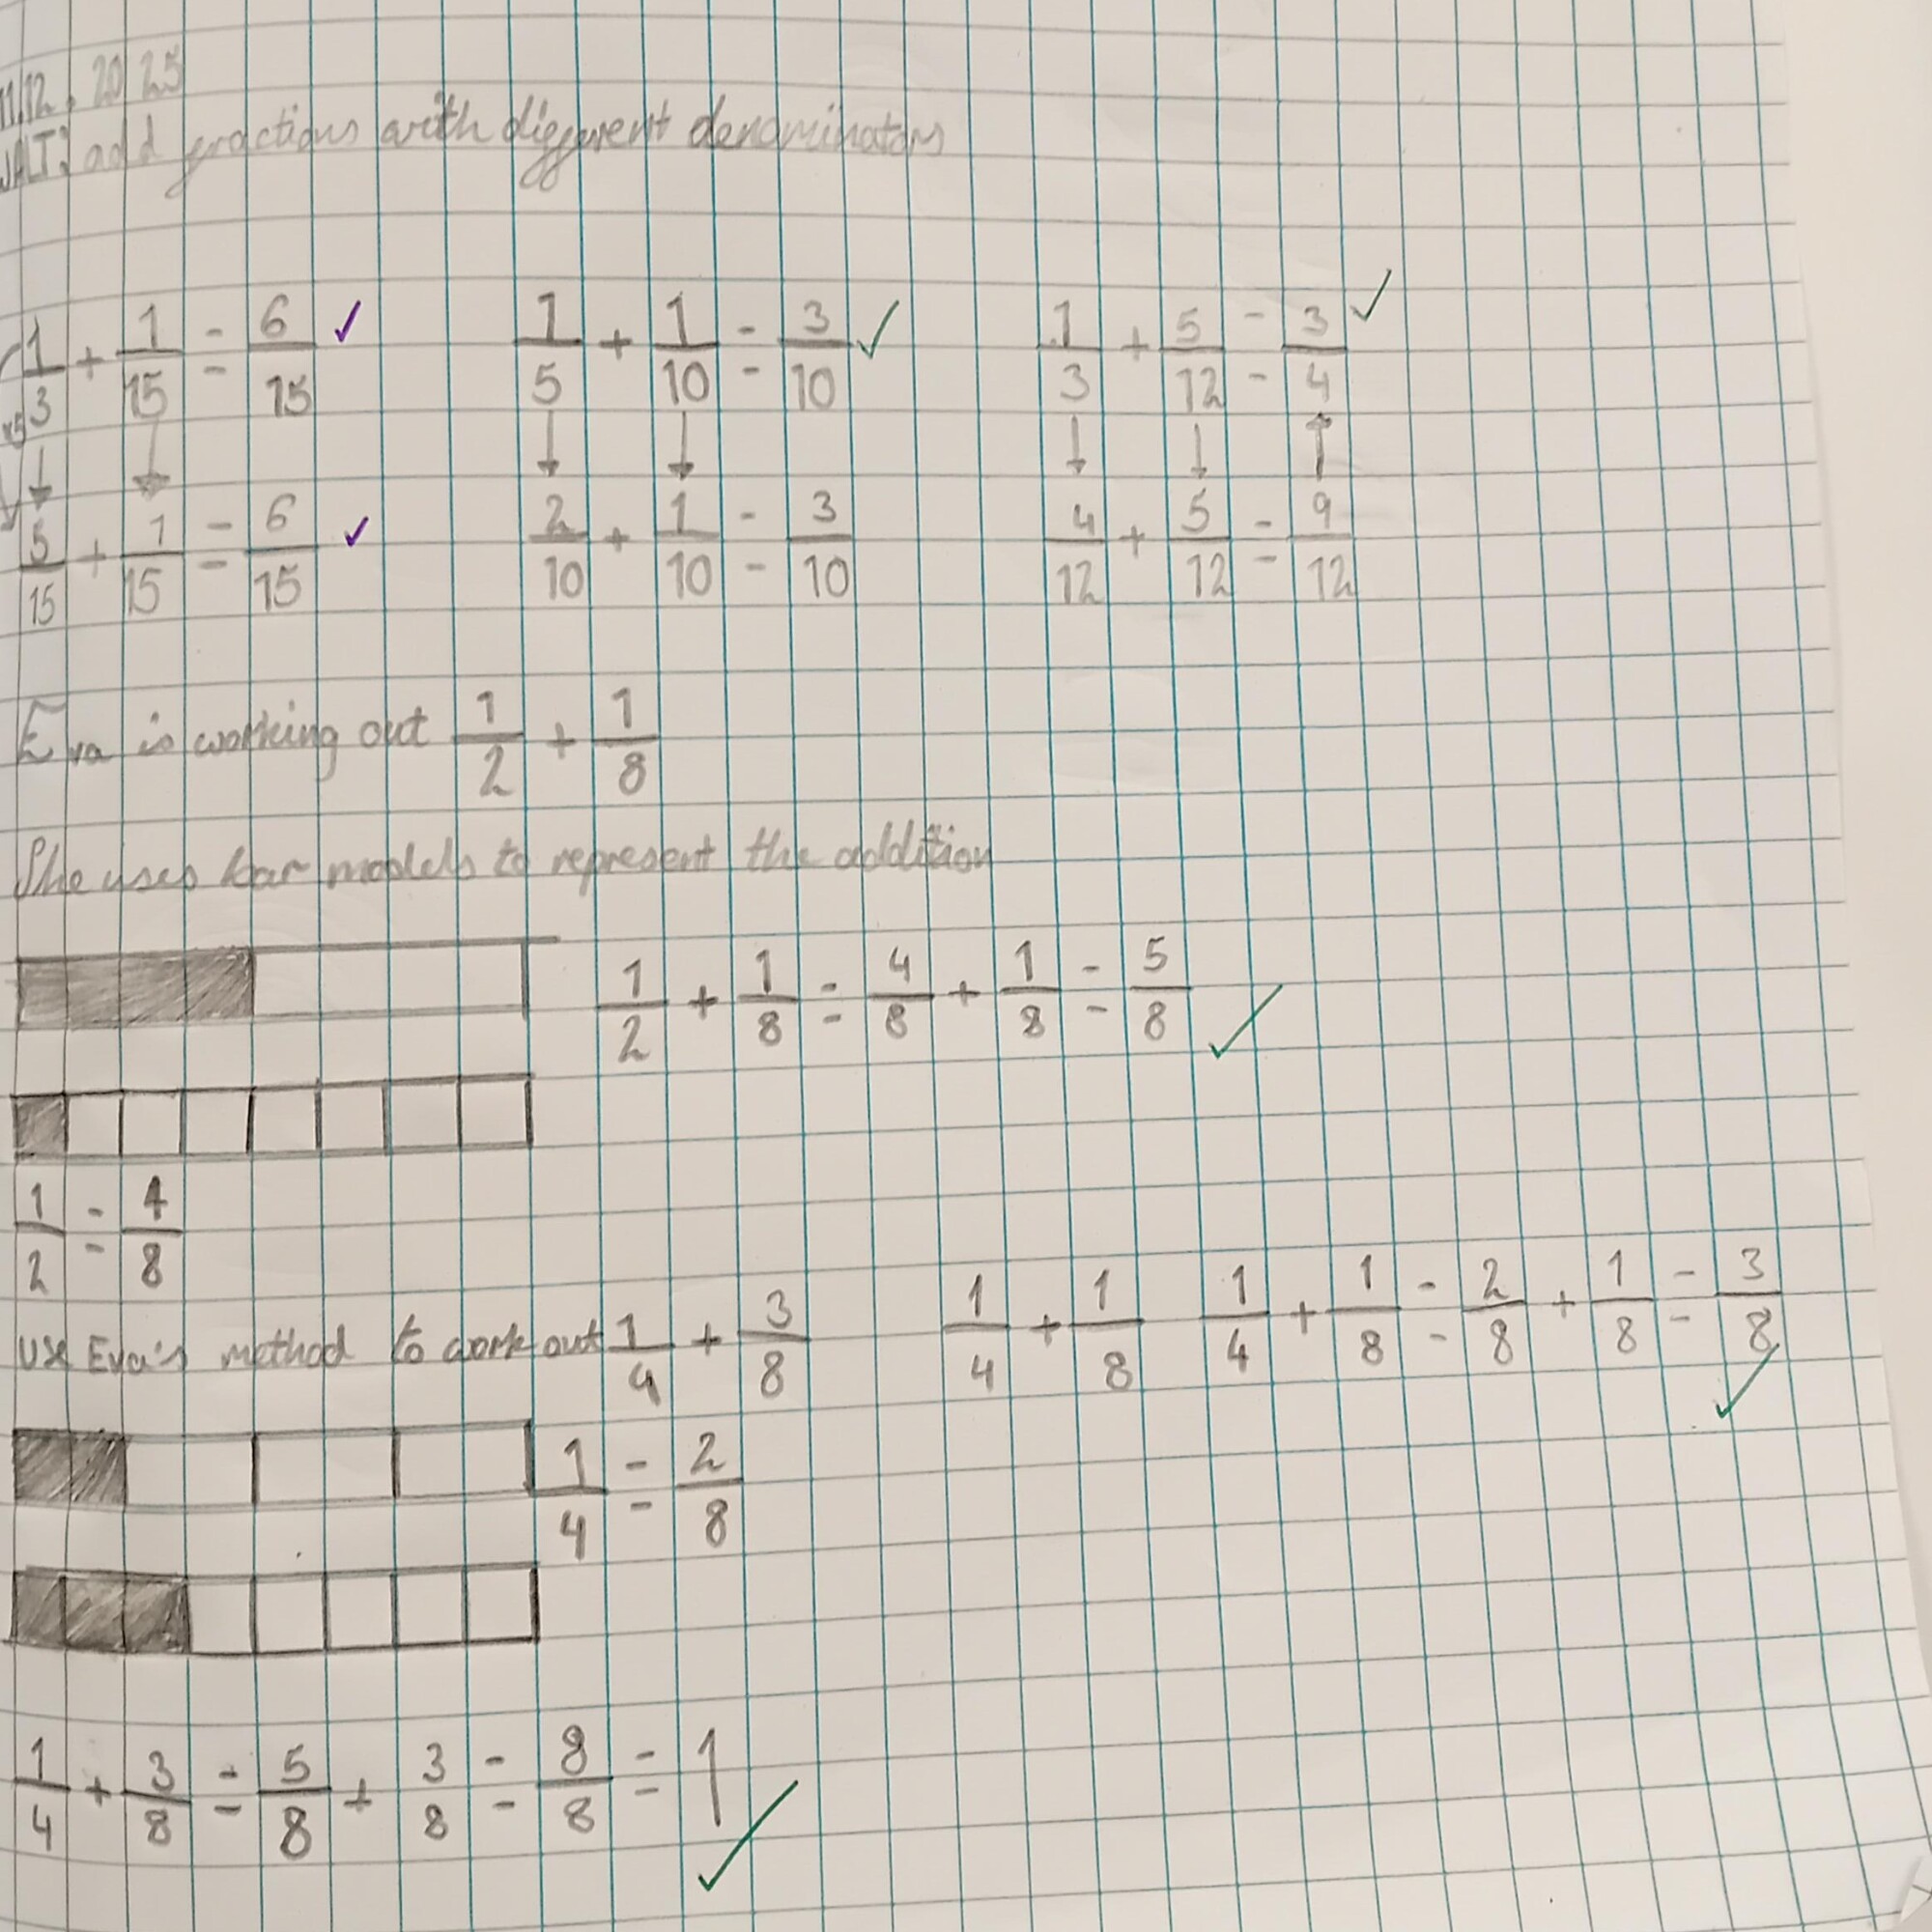 11.12.2025
WALT: add fractions with different denominators
1/3 + 1/15 = 6/15 ✓ 1/5 + 1/10 = 3/10 ✓ 1/3 + 5/12 = 3/4 ✓
x5 ↓ ↓ ↓ ↓ ↓ ↓ ↑
5/15 + 1/15 = 6/15 ✓ 2/10 + 1/10 = 3/10 4/12 + 5/12 = 9/12
Eva is working out 1/2 + 1/8
She uses bar models to represent the addition
1/2 + 1/8 = 4/8 + 1/8 = 5/8 ✓
1/2 = 4/8
Use Eva's method to work out 1/4 + 3/8 1/4 + 1/8 1/4 + 1/8 = 2/8 + 1/8 = 3/8 ✓
1/4 = 2/8
1/4 + 3/8 = 5/8 + 3/8 = 8/8 = 1 ✓